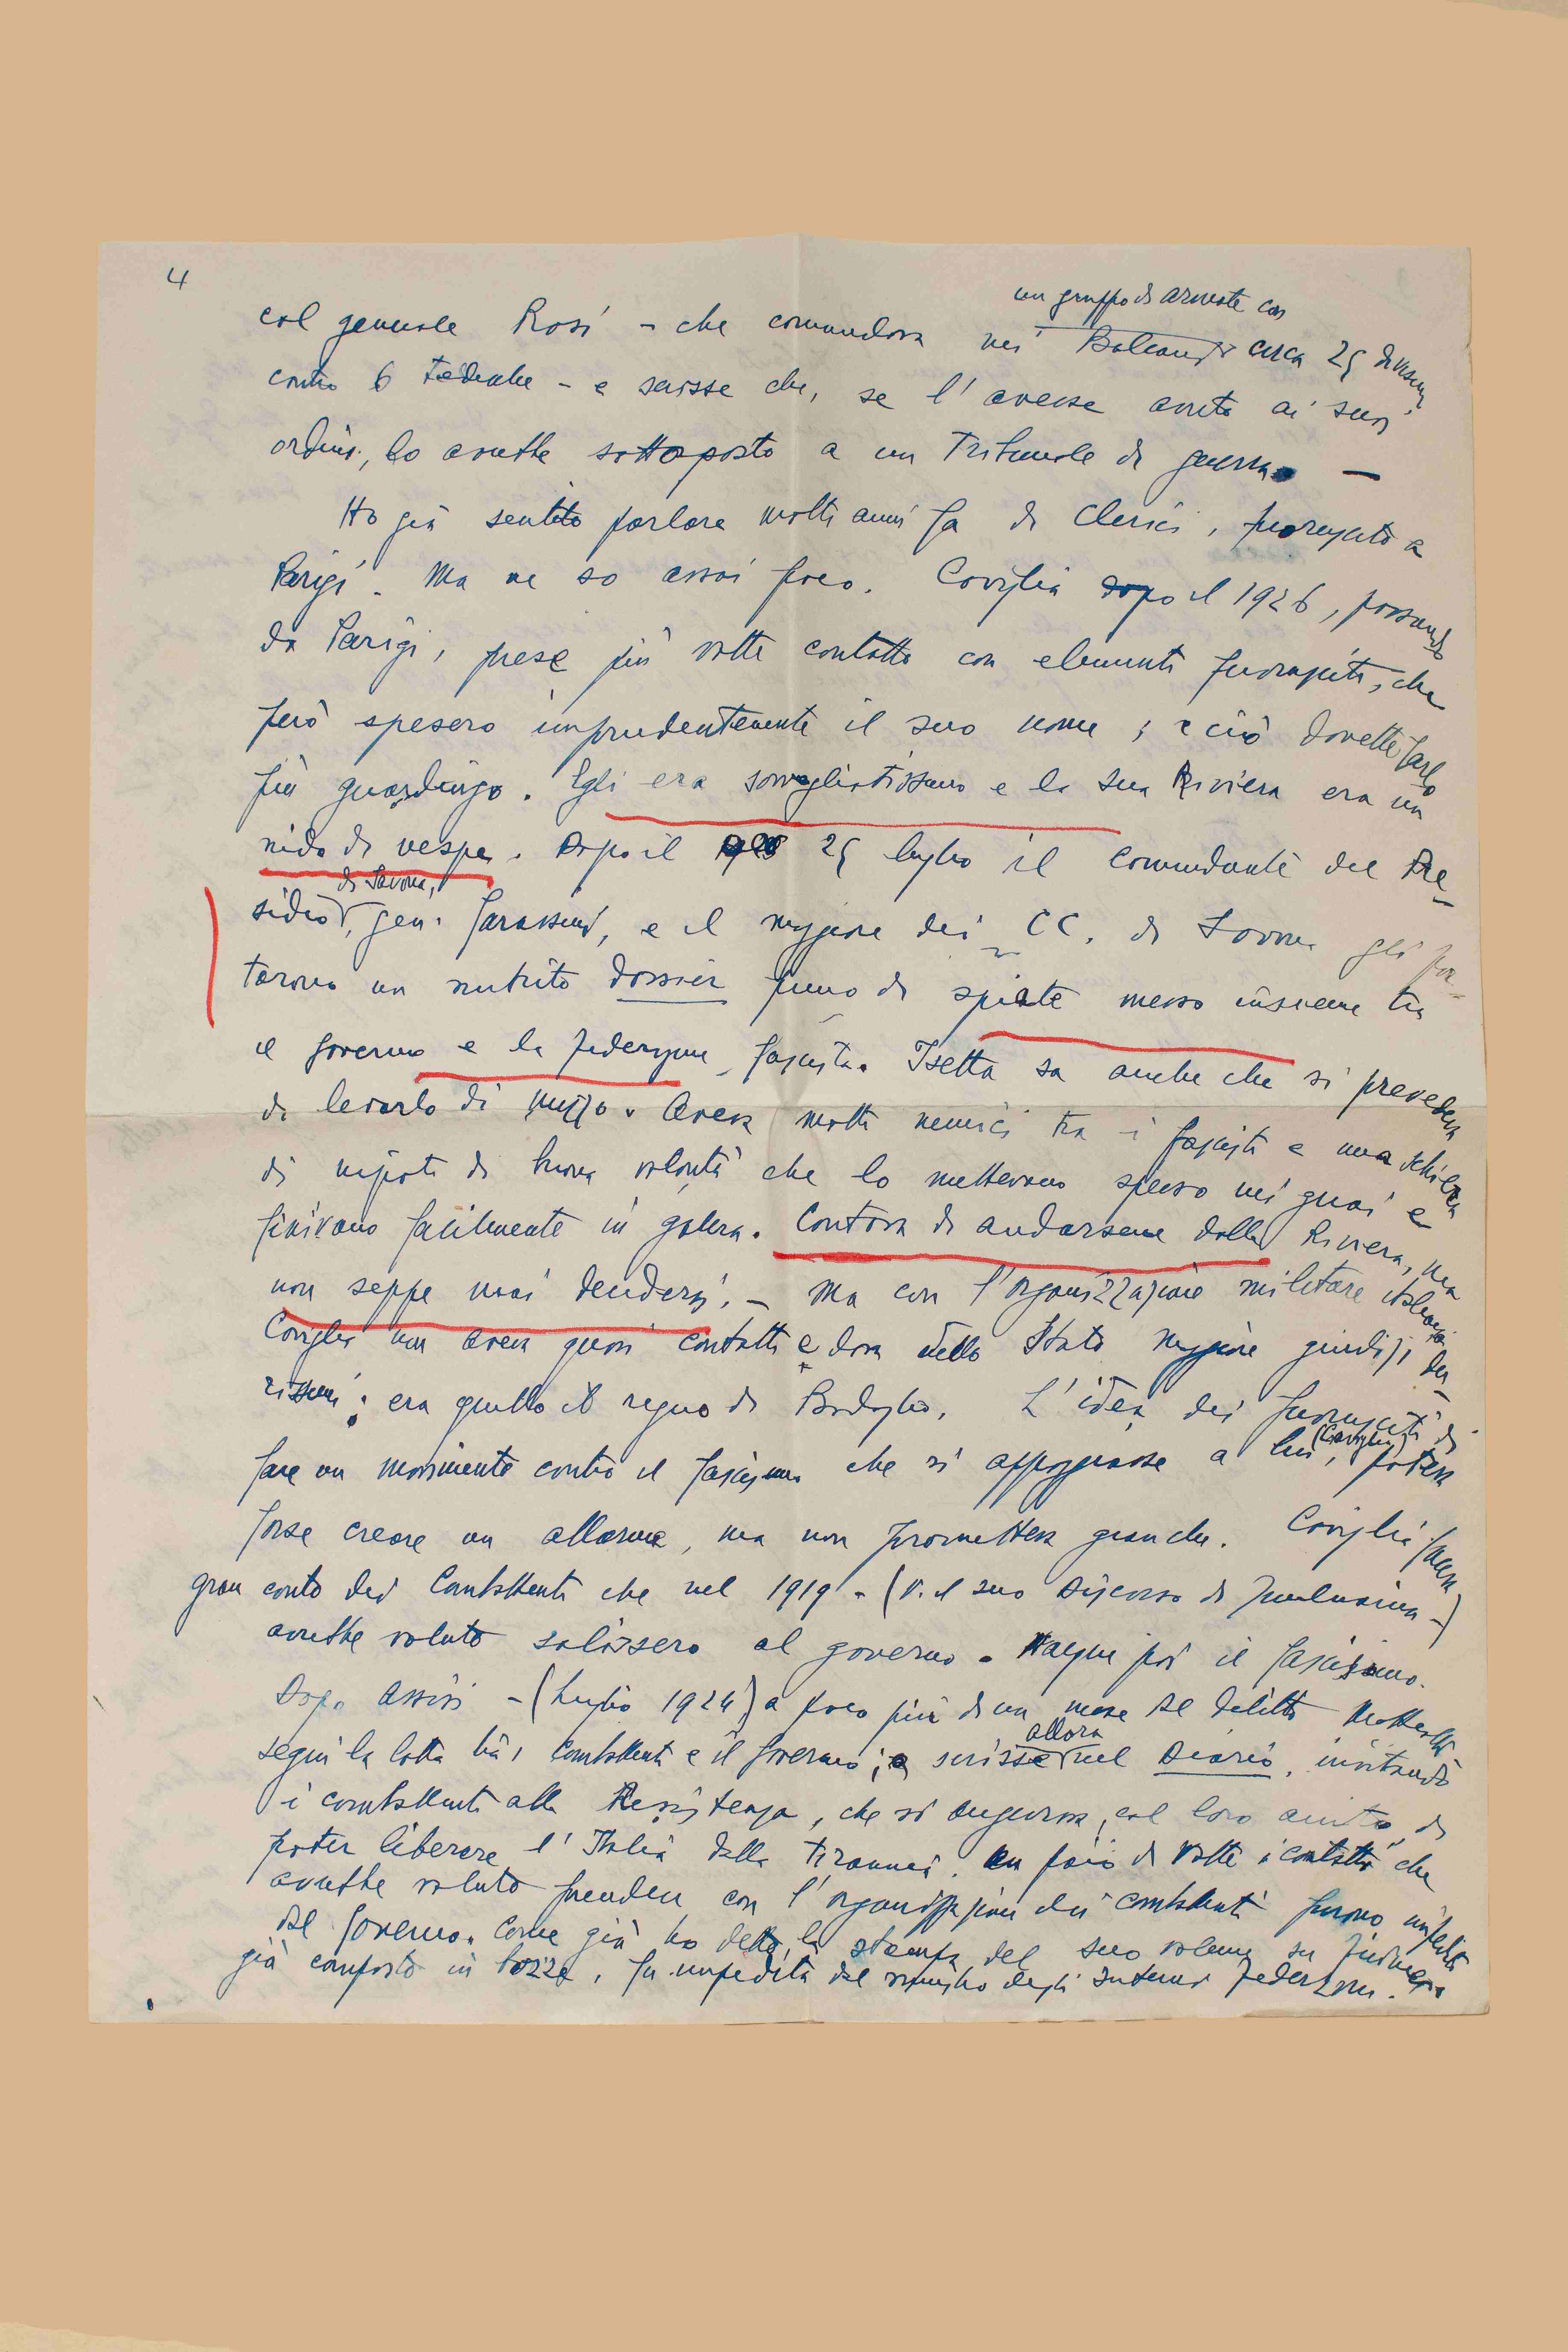 4
un gruppo di armate con
col generale Rosi - che comandava nei Balcani circa 25 divisioni
contro 6 tedesche - e scrisse che, se l'avesse avuto ai suoi
ordini, lo avrebbe sottoposto a un Tribunale di guerra. —
Ho già sentito parlare molti anni fa di Clerici, fuoruscito a
Parigi. Ma ne so assai poco. Caviglia dopo il 1926, passando
da Parigi, prese più volte contatto con elementi fuorusciti, che
però spesero imprudentemente il suo nome; e ciò dovette farlo
più guardingo. Egli era sorvegliatissimo e la sua Riviera era un
nido di vespe. Dopo il 25 luglio il comandante del Pre-
di Savona,
sidio, gen. , e il maggiore dei CC. di Savona gli por-
tarono un nutrito dossier pieno di spiate messo insieme tra
il governo e la federazione fascista. Isetta sa anche che si prevedeva
di levarlo di mezzo. Aveva molti nemici tra i fascisti e una schiera
di nipoti di buona volontà che lo mettevano spesso nei guai e
finivano facilmente in galera. Contava di andarsene dalla Riviera, ma
non seppe mai decidersi. - Ma con l'organizzazione militare italiana
Caviglia non aveva quasi contatti e dava dello Stato Maggiore giudizi du-
rissimi: era quello il regno di Badoglio. L'idea dei fuorusciti di
(Caviglia)
fare un movimento contro il fascismo che si appoggiasse a lui, poteva
forse creare un allarme, ma non prometteva granché. Caviglia faceva
gran conto dei Combattenti che nel 1919 - (V. il suo Discorso di -)
avrebbe voluto salissero al governo. Nacque poi il fascismo.
Dopo Assisi - (luglio 1924) a poco più di un mese dal delitto Matteotti
allora
seguì la lotta tra i Combattenti e il governo; scrisse nel Diario, invitando
i combattenti alla Resistenza, che si augurava, col loro aiuto, di
poter liberare l'Italia dalla tirannei. Un paio di volte i contatti che
avrebbe voluto prendere con l'organizzazione dei combattenti furono impediti
dal governo. Come già ho detto, la stampa del suo volume su
già composto in bozze, fu impedita dal ministro degli Interni Federzoni.